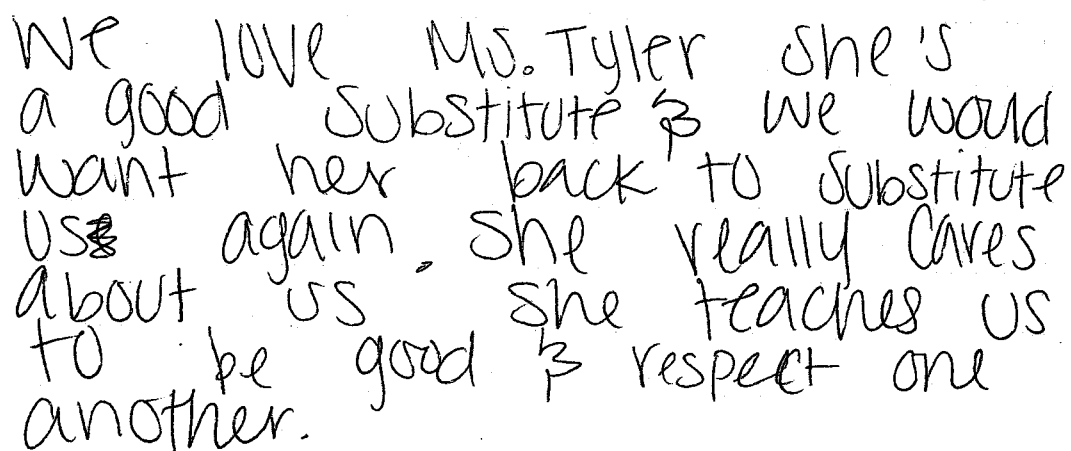 We love Ms. Tyler she's
a good substitute & we would
want her back to substitute
us again. She really cares
about us she teaches us
to be good & respect one
another.